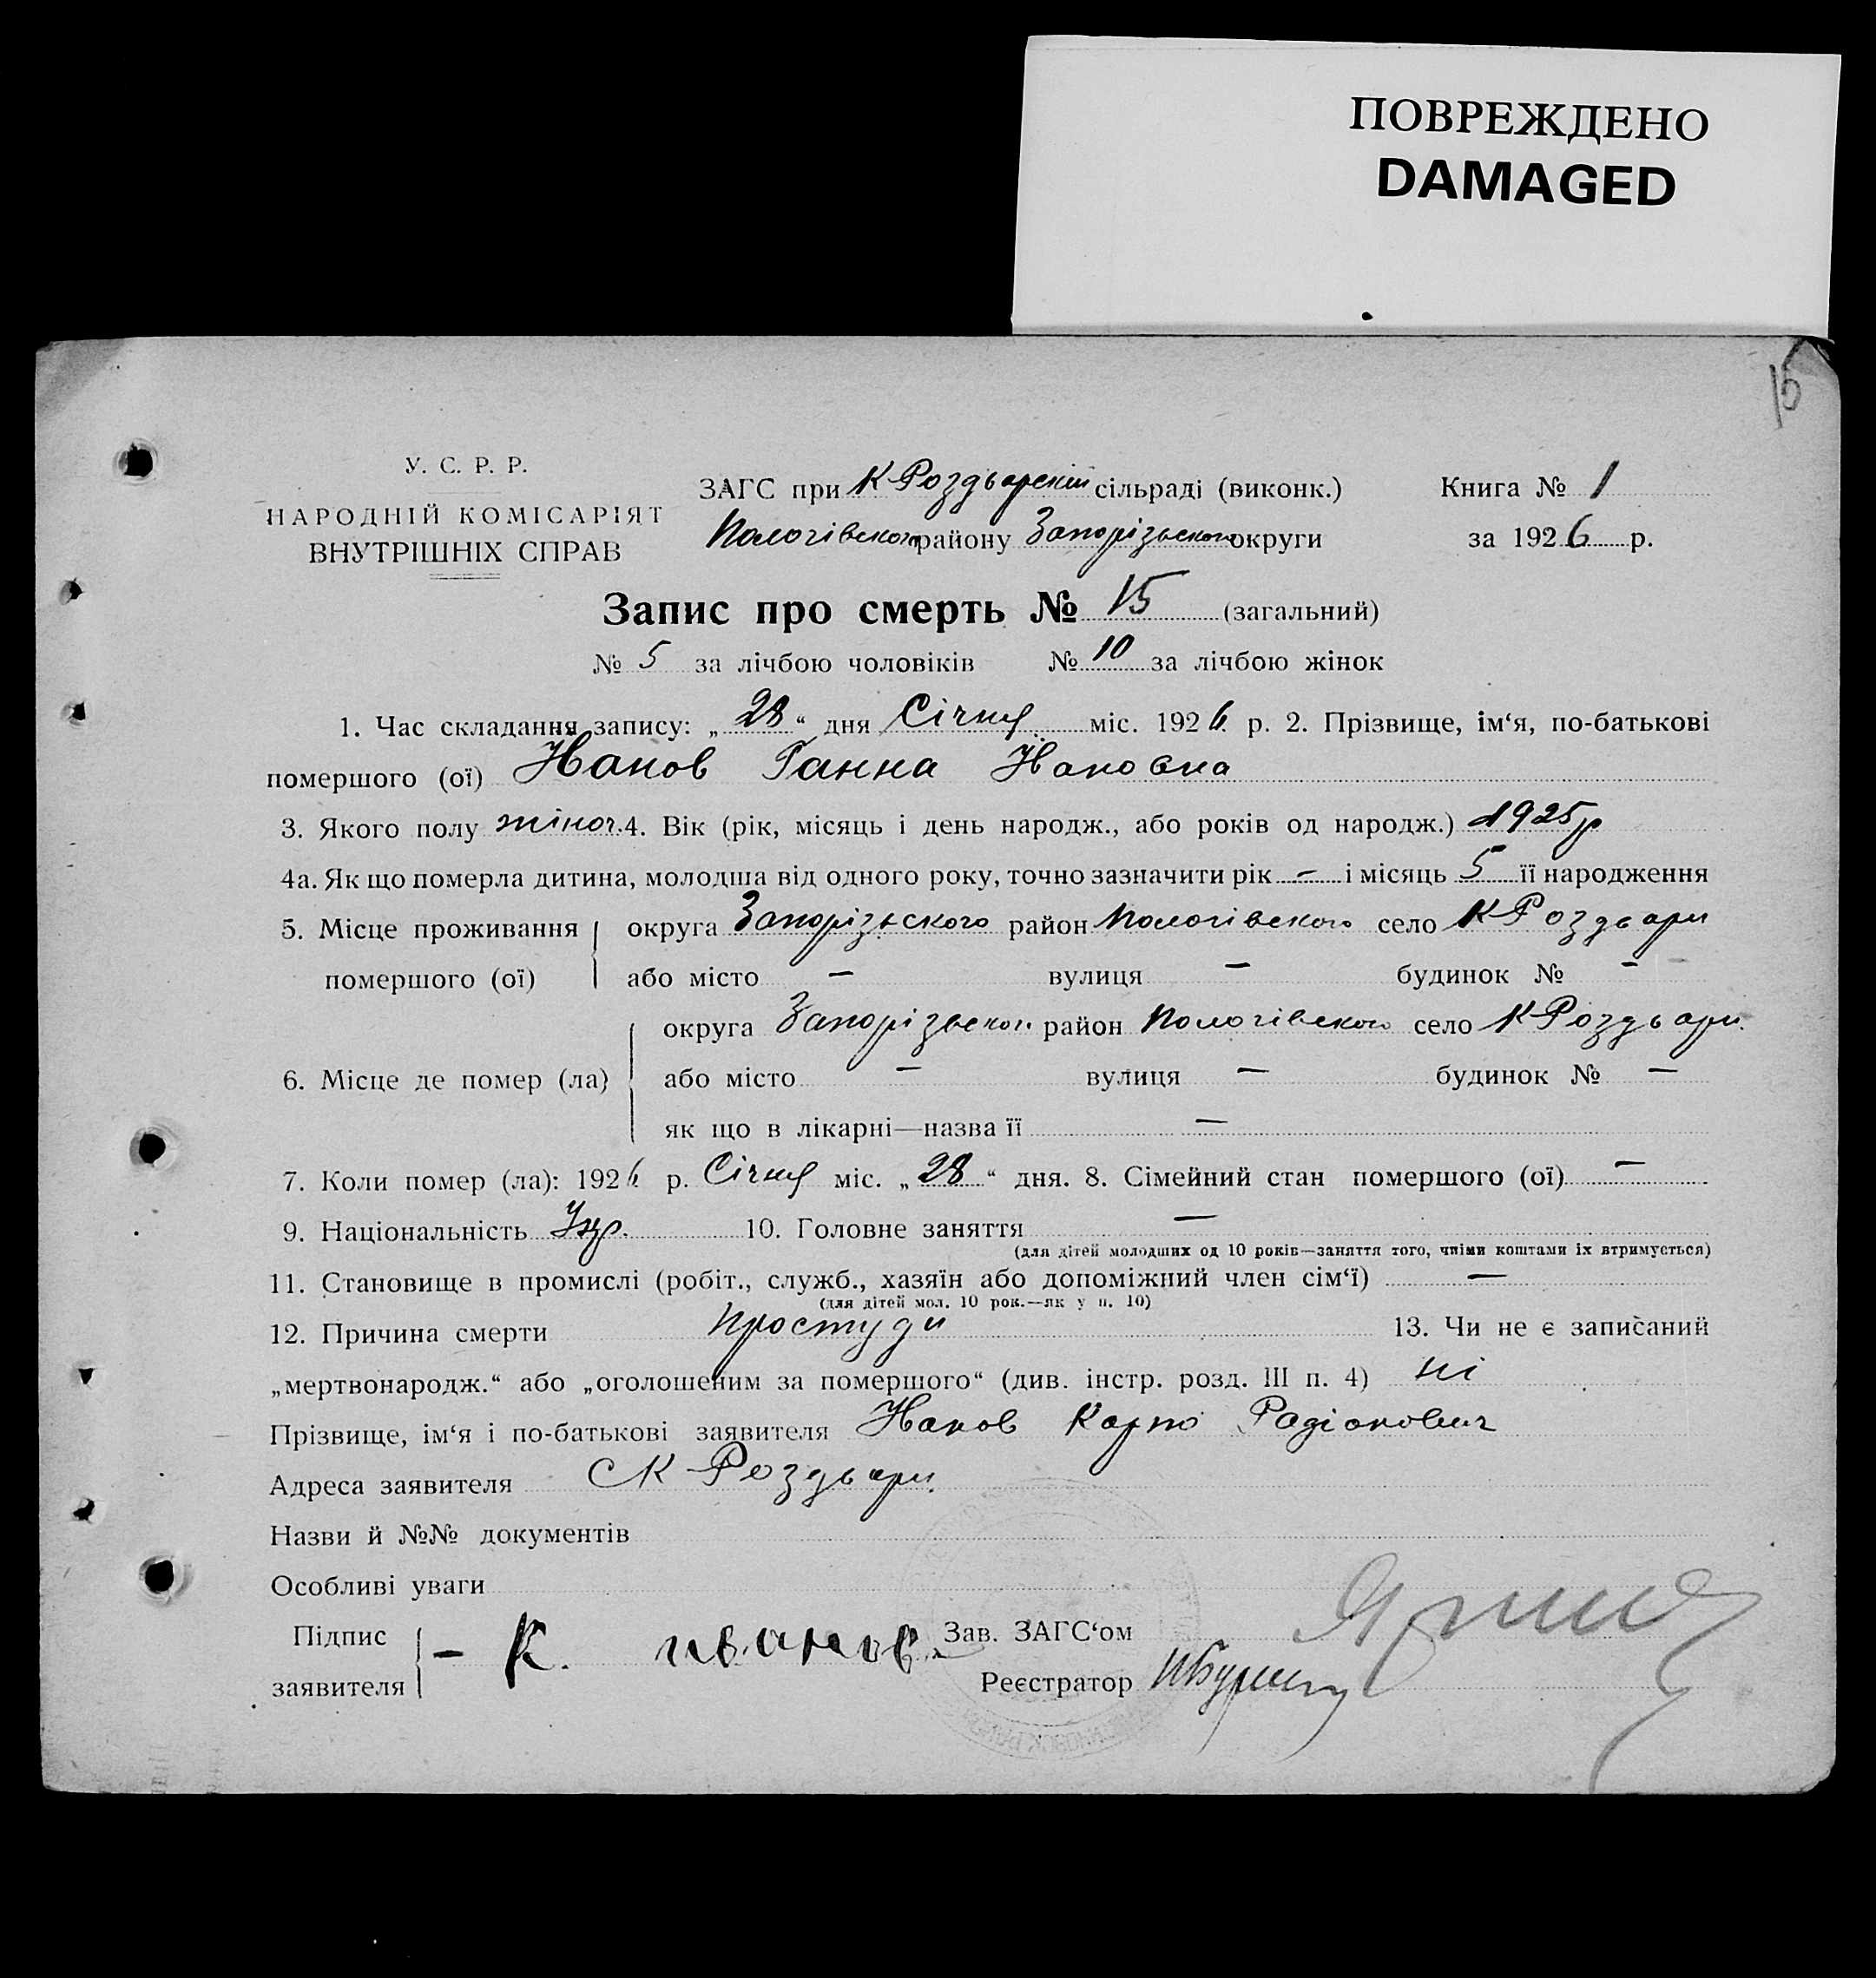 ПОВРЕЖДЕНО
DAMAGED
15
У. С. Р. Р.
НАРОДНІЙ КОМІСАРІЯТ
ВНУТРІШНІХ СПРАВ
ЗАГС при К Роздорській сільраді (виконк.)
Пологівского району Запорізьского округи
Книга № 1
за 1926 р.
Запис про смерть № 15 (загальний)
№ 5 за лічбою чоловіків № 10 за лічбою жінок
1. Час складання запису: „28“ дня Січня міс. 1926 р. 2. Прізвище, ім‘я, по-батькові
помершого (ої) Ганна
3. Якого полу жіноч. 4. Вік (рік, місяць і день народж., або років од народж.) 1925р
4а. Як що померла дитина, молодша від одного року, точно зазначити рік — і місяць 5 її народження
5. Місце проживання помершого (ої) округа Запорізьского район Пологівского село К Роздори
або місто — вулиця — будинок № —
6. Місце де помер (ла) округа Запорізьского район Пологівского село К Роздори.
або місто — вулиця — будинок № —
як що в лікарні—назва її —
7. Коли помер (ла): 1926 р. Січня міс. „28“ дня. 8. Сімейний стан помершого (ої) —
9. Національність Укр. 10. Головне заняття —
(для дітей молодших од 10 років—заняття того, чиїми коштами їх втримується)
11. Становище в промислі (робіт., служб., хазяїн або допоміжний член сім‘ї) —
(для дітей мол. 10 рок.—як у п. 10)
12. Причина смерти простуди 13. Чи не є записаний
„мертвонародж.“ або „оголошеним за помершого“ (див. інстр. розд. III п. 4) ні
Прізвище, ім‘я і по-батькові заявителя Карпо Радіонович
Адреса заявителя С К Роздори.
Назви й №№ документів
Особливі уваги
Підпис заявителя – К. иванов. Зав. ЗАГС‘ом
Реєстратор